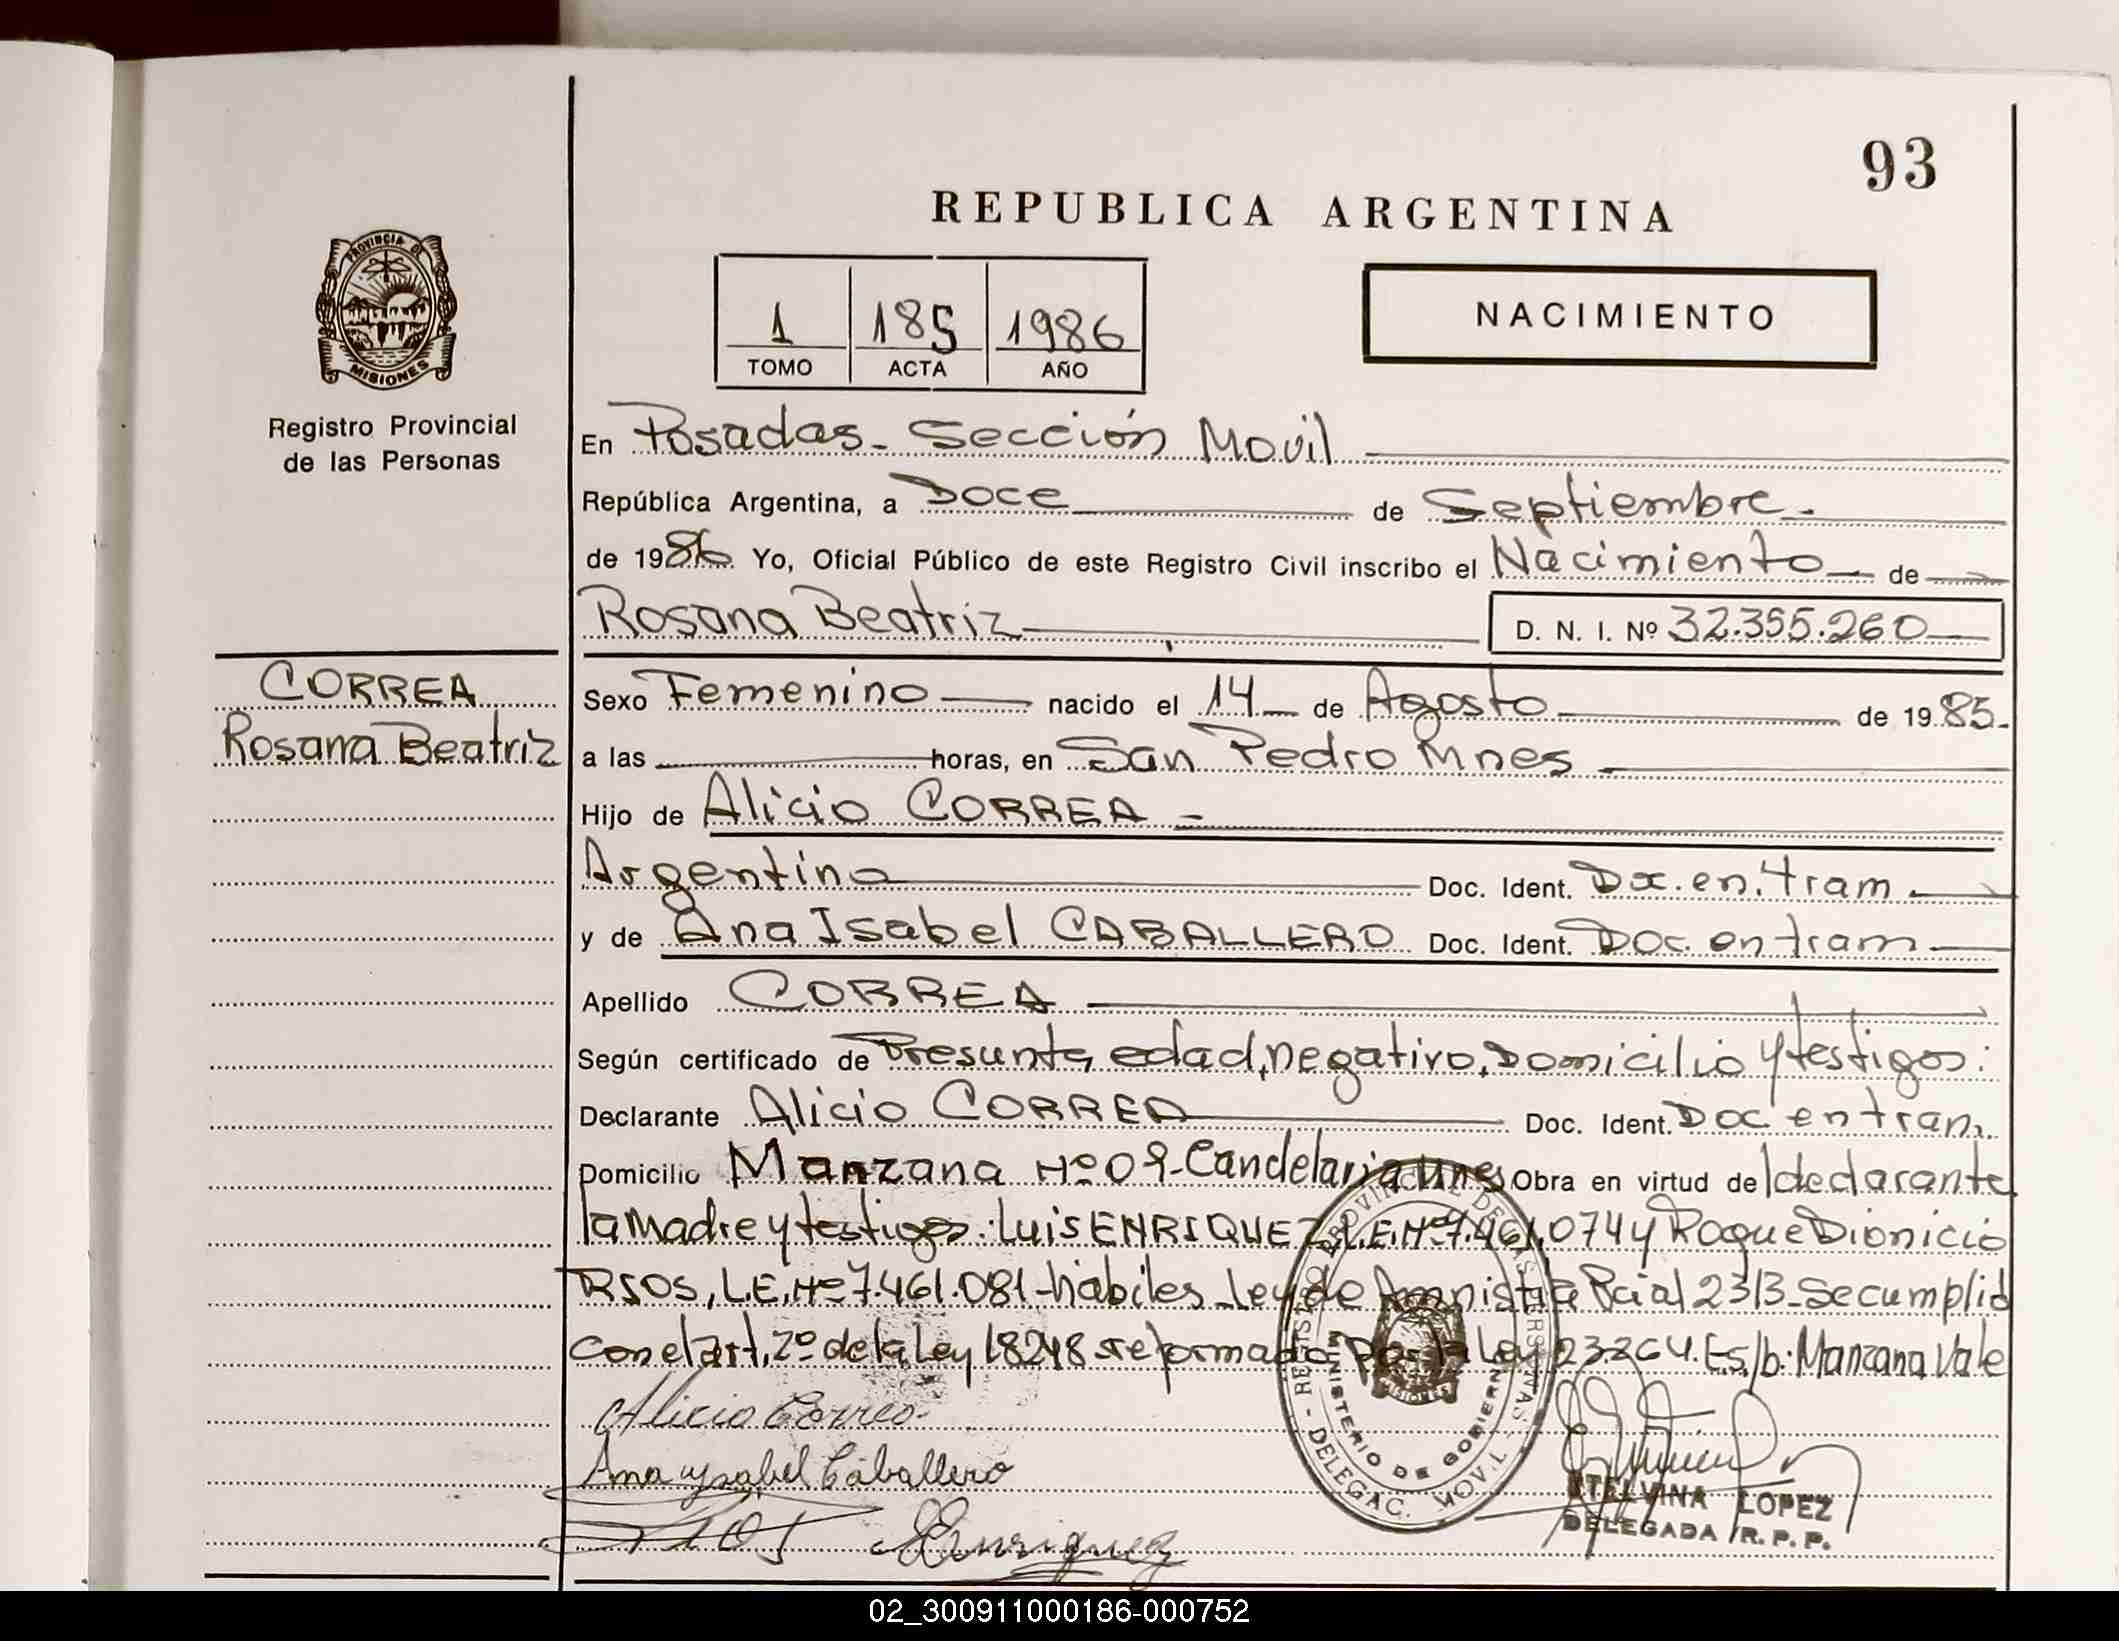 93
REPUBLICA ARGENTINA
PROVINCIA DE
MISIONES
1 185 1986
TOMO ACTA AÑO
NACIMIENTO
Registro Provincial
de las Personas
En Posadas - Sección Movil
República Argentina, a Doce de Septiembre.
de 1986 Yo, Oficial Público de este Registro Civil inscribo el Nacimiento de
Rosana Beatriz D. N. I. Nº 32.355.260
CORREA
Rosana Beatriz
Sexo Femenino nacido el 14 de Agosto de 1985.
a las horas, en San Pedro Mnes
Hijo de Alicio CORREA
Argentino Doc. Ident. Doc. en tram.
y de Ana Isabel CABALLERO Doc. Ident. Doc. en tram
Apellido CORREA
Según certificado de Presunta edad, negativo, Domicilio y testigos:
Declarante Alicio CORREA Doc. Ident. Doc en tram.
Domicilio Manzana Nº 09-Candelaria Mnes Obra en virtud de l declarante
la Madre y testigos: Luis ENRIQUEZ, L.E.Nº 7.461.074 y Roque Dionicio
RIOS, L.E.Nº 7.461.081-hábiles - Ley de Amnistia Pcial 2313-Se cumplió
con el art. 2º de la Ley 18248 reformado por la Ley 23.264. Es/b: Manzana Vale
REGISTRO PROVINCIAL DE LAS PERSONAS - DELEGAC. MOVIL
MINISTERIO DE GOBIERNO
MISIONES
Alicio Correa
Ana Ysabel Caballero
Enriquez
STELVINA LOPEZ
DELEGADA R. P. P.
02_300911000186-000752